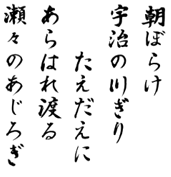 朝ぼらけ
宇治の川ぎり
たえだえに
あらはれ渡る
瀬々のあじろぎ